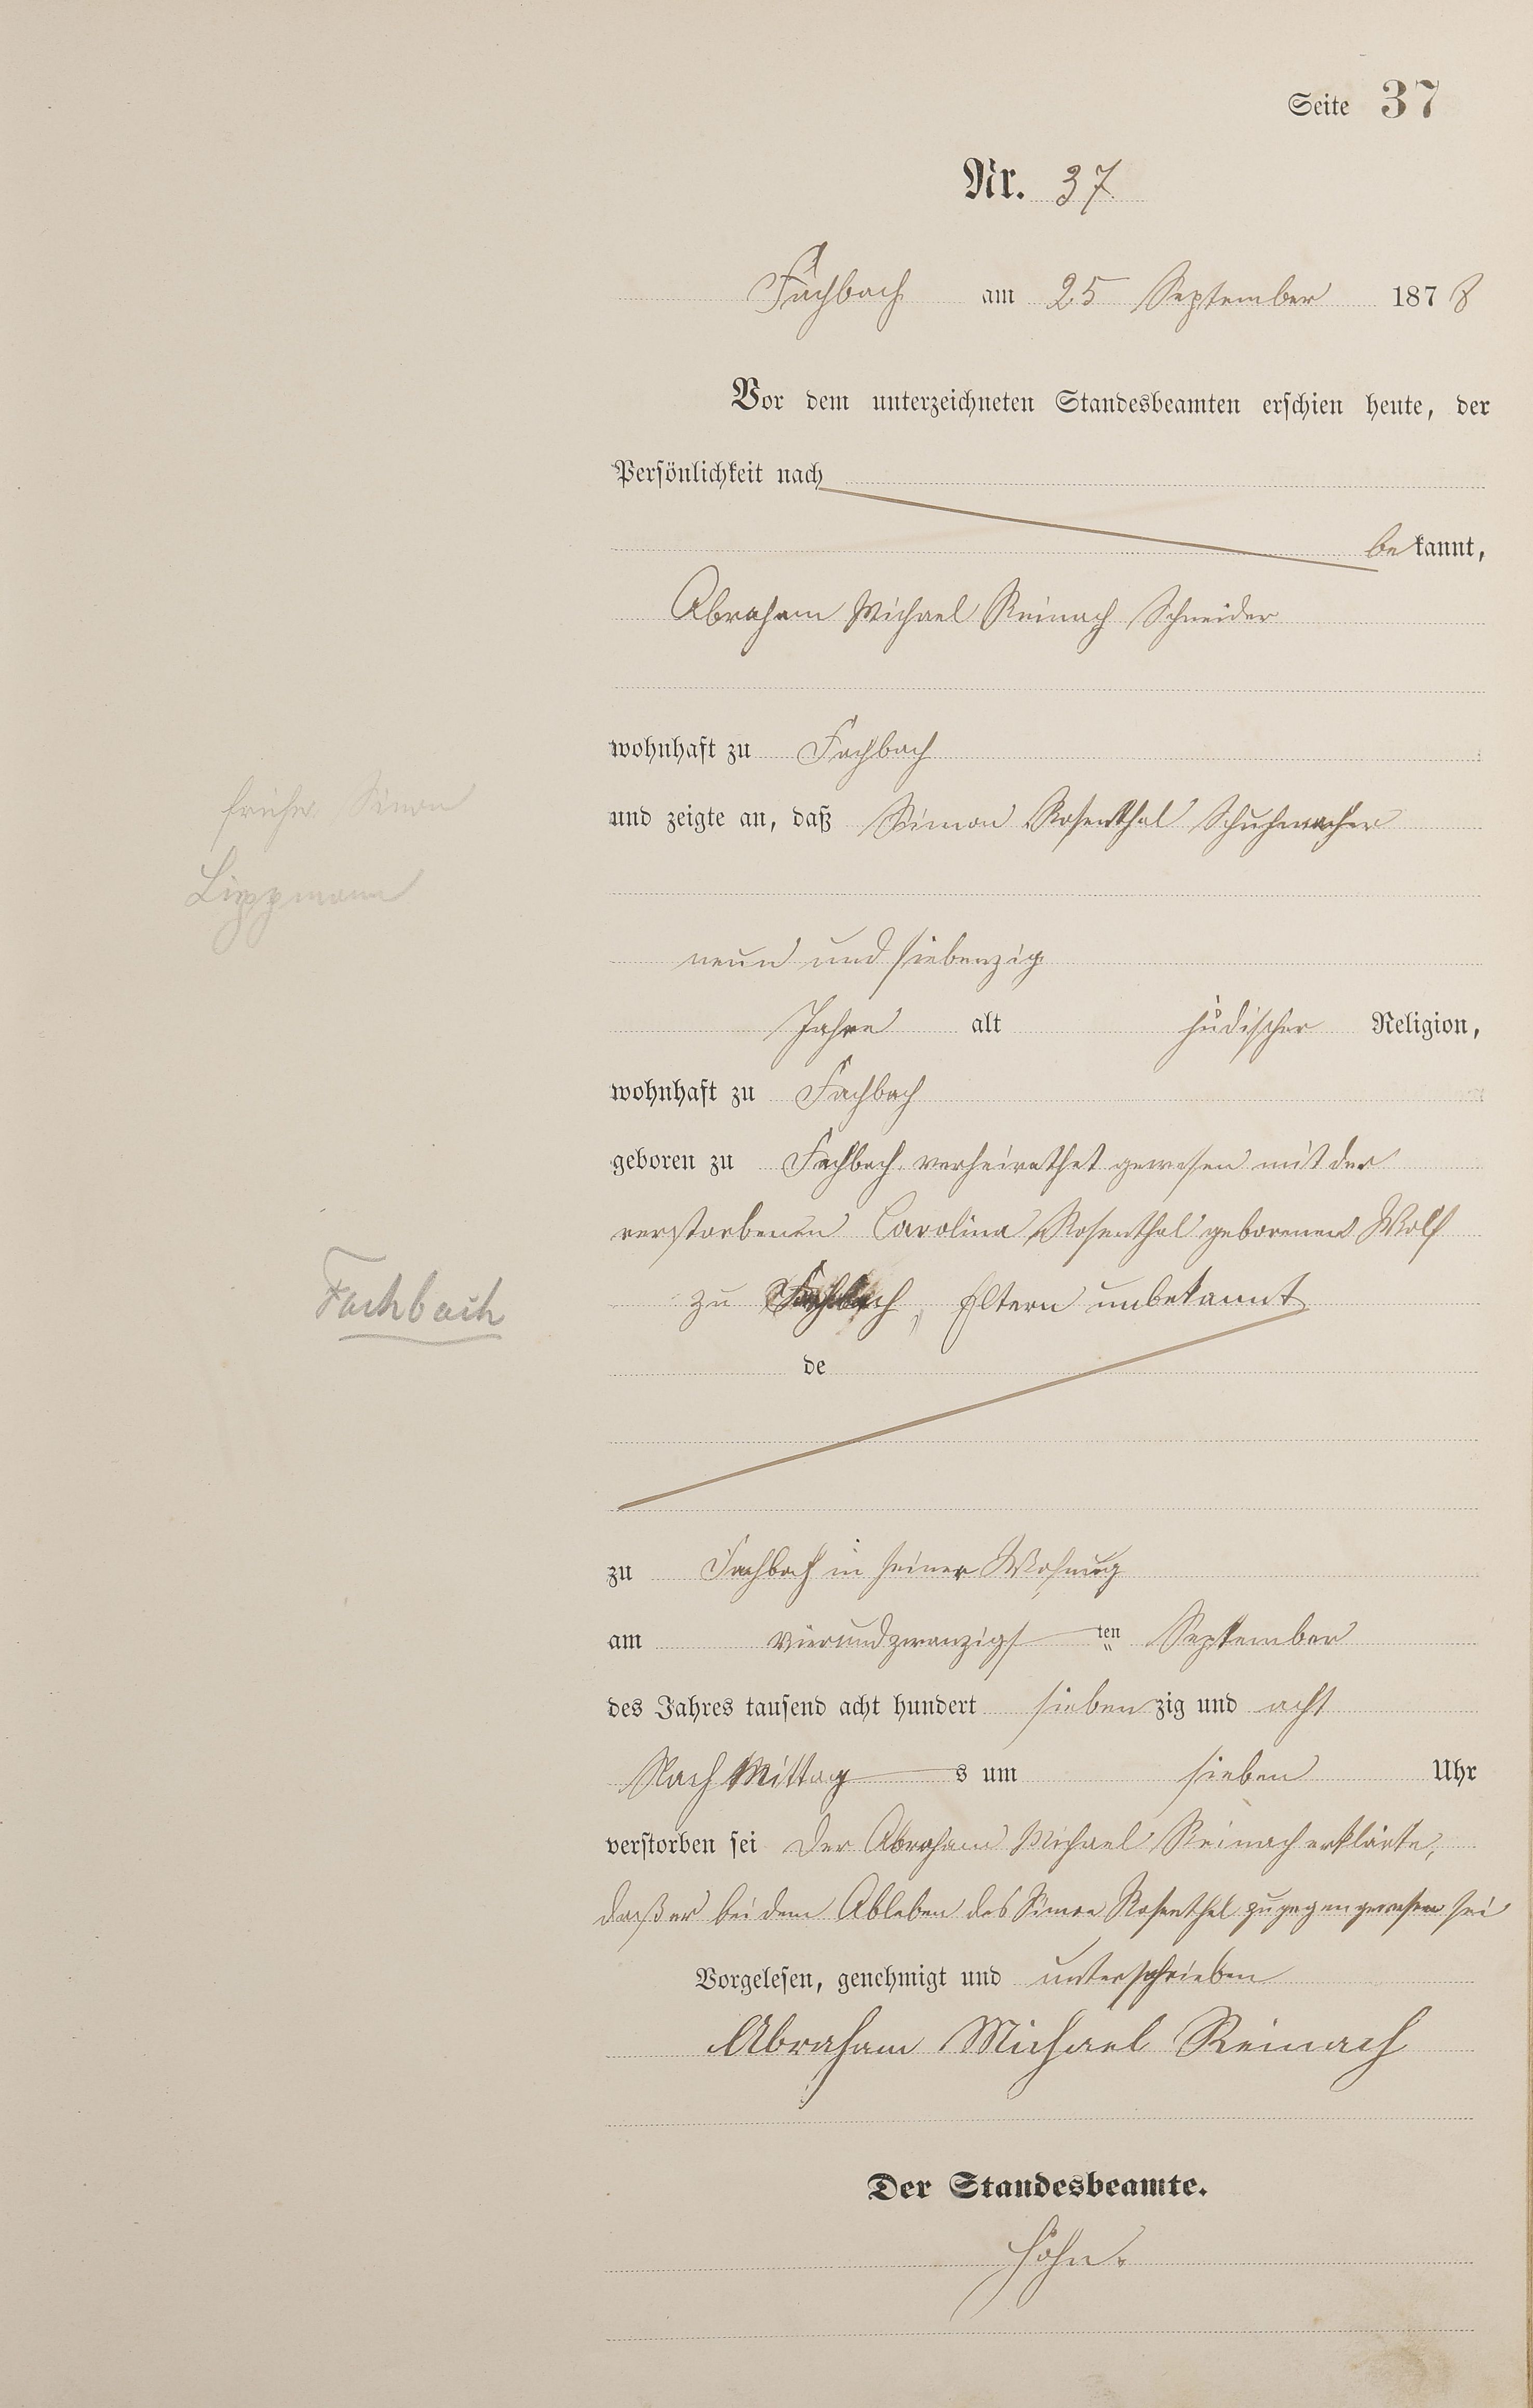 Seite 37
Nr. 37
Fachbach am 25 September 1878
Vor dem unterzeichneten Standesbeamten erschien heute, der
Persönlichkeit nach
bekannt,
Abraham Michael Reinach Schneider
wohnhaft zu Fachbach
früher Simon
und zeigte an, daß Simon Rosenthal Schuhmacher
Lippmann
neun und siebenzig
Jahre alt jüdischer Religion,
wohnhaft zu Fachbach
geboren zu Fachbach verheirathet gewesen mit der
verstorbenen Carolina Rosenthal geborenen Wolf
Fachbach
zu Fachbach, Eltern unbekannt
de
zu Fachbach in seiner Wohnung
am vierundzwanzigsten September
des Jahres tausend acht hundert siebenzig und acht
Nach Mittags um sieben Uhr
verstorben sei Der Abraham Michael Reinach erklärte,
daß er bei dem Ableben des Simon Rosenthal zugegen gewesen sei
Vorgelesen, genehmigt und unterschrieben
Abraham Michael Reinach
Der Standesbeamte.
Höhn.